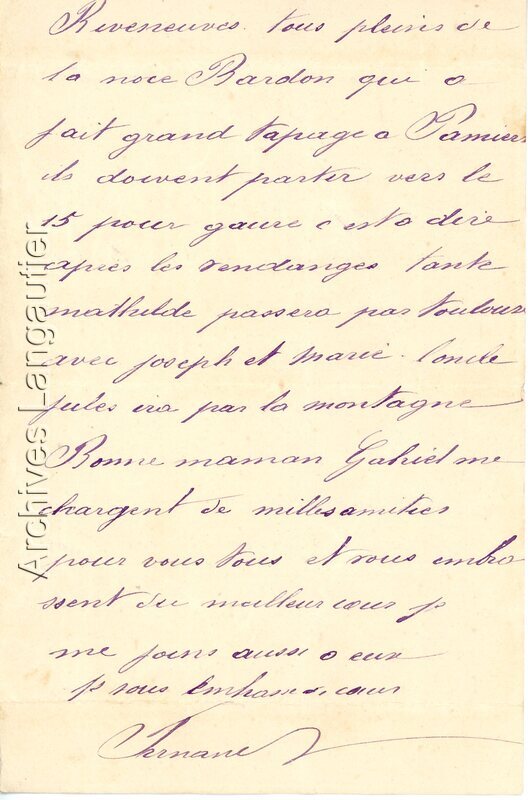 Riveneuves. tous pleins de
la noce Bardon qui a
fait grand tapage a Pamiers
ils doivent parter vers le
15 pour gaure c est a dire
apres les vendanges tante
mathilde passera par toulouse
avec joseph et marie. l oncle
jules ira par la montagne
Bonne maman Gabriel me
chargent de milles amities
pour vous tous et vous embra
ssent du meilleur cœur je
me joins aussi a eux
je vous embrasse de cœur
Fernand
Archives Langautier